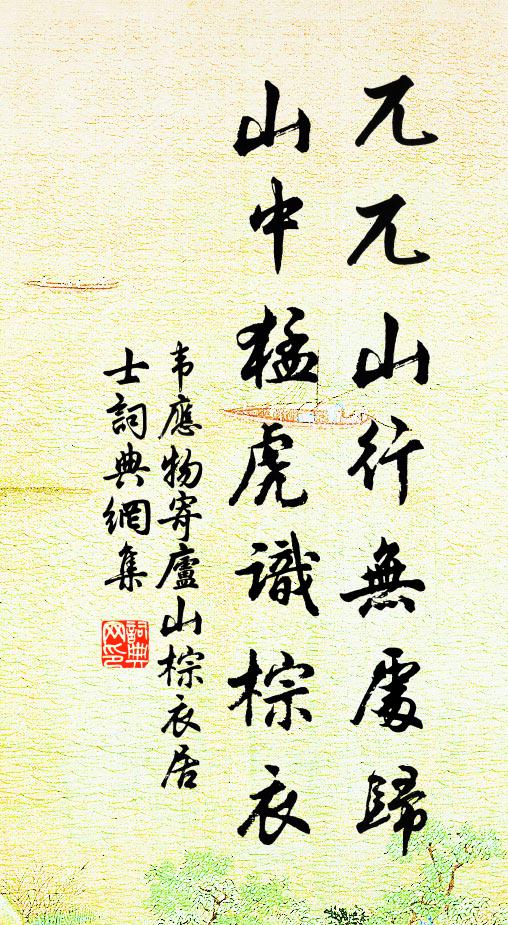 兀兀山行無處歸
山中猛虎識棕衣
韦應物寄廬山棕衣居
士詞典網集
詞典
网印